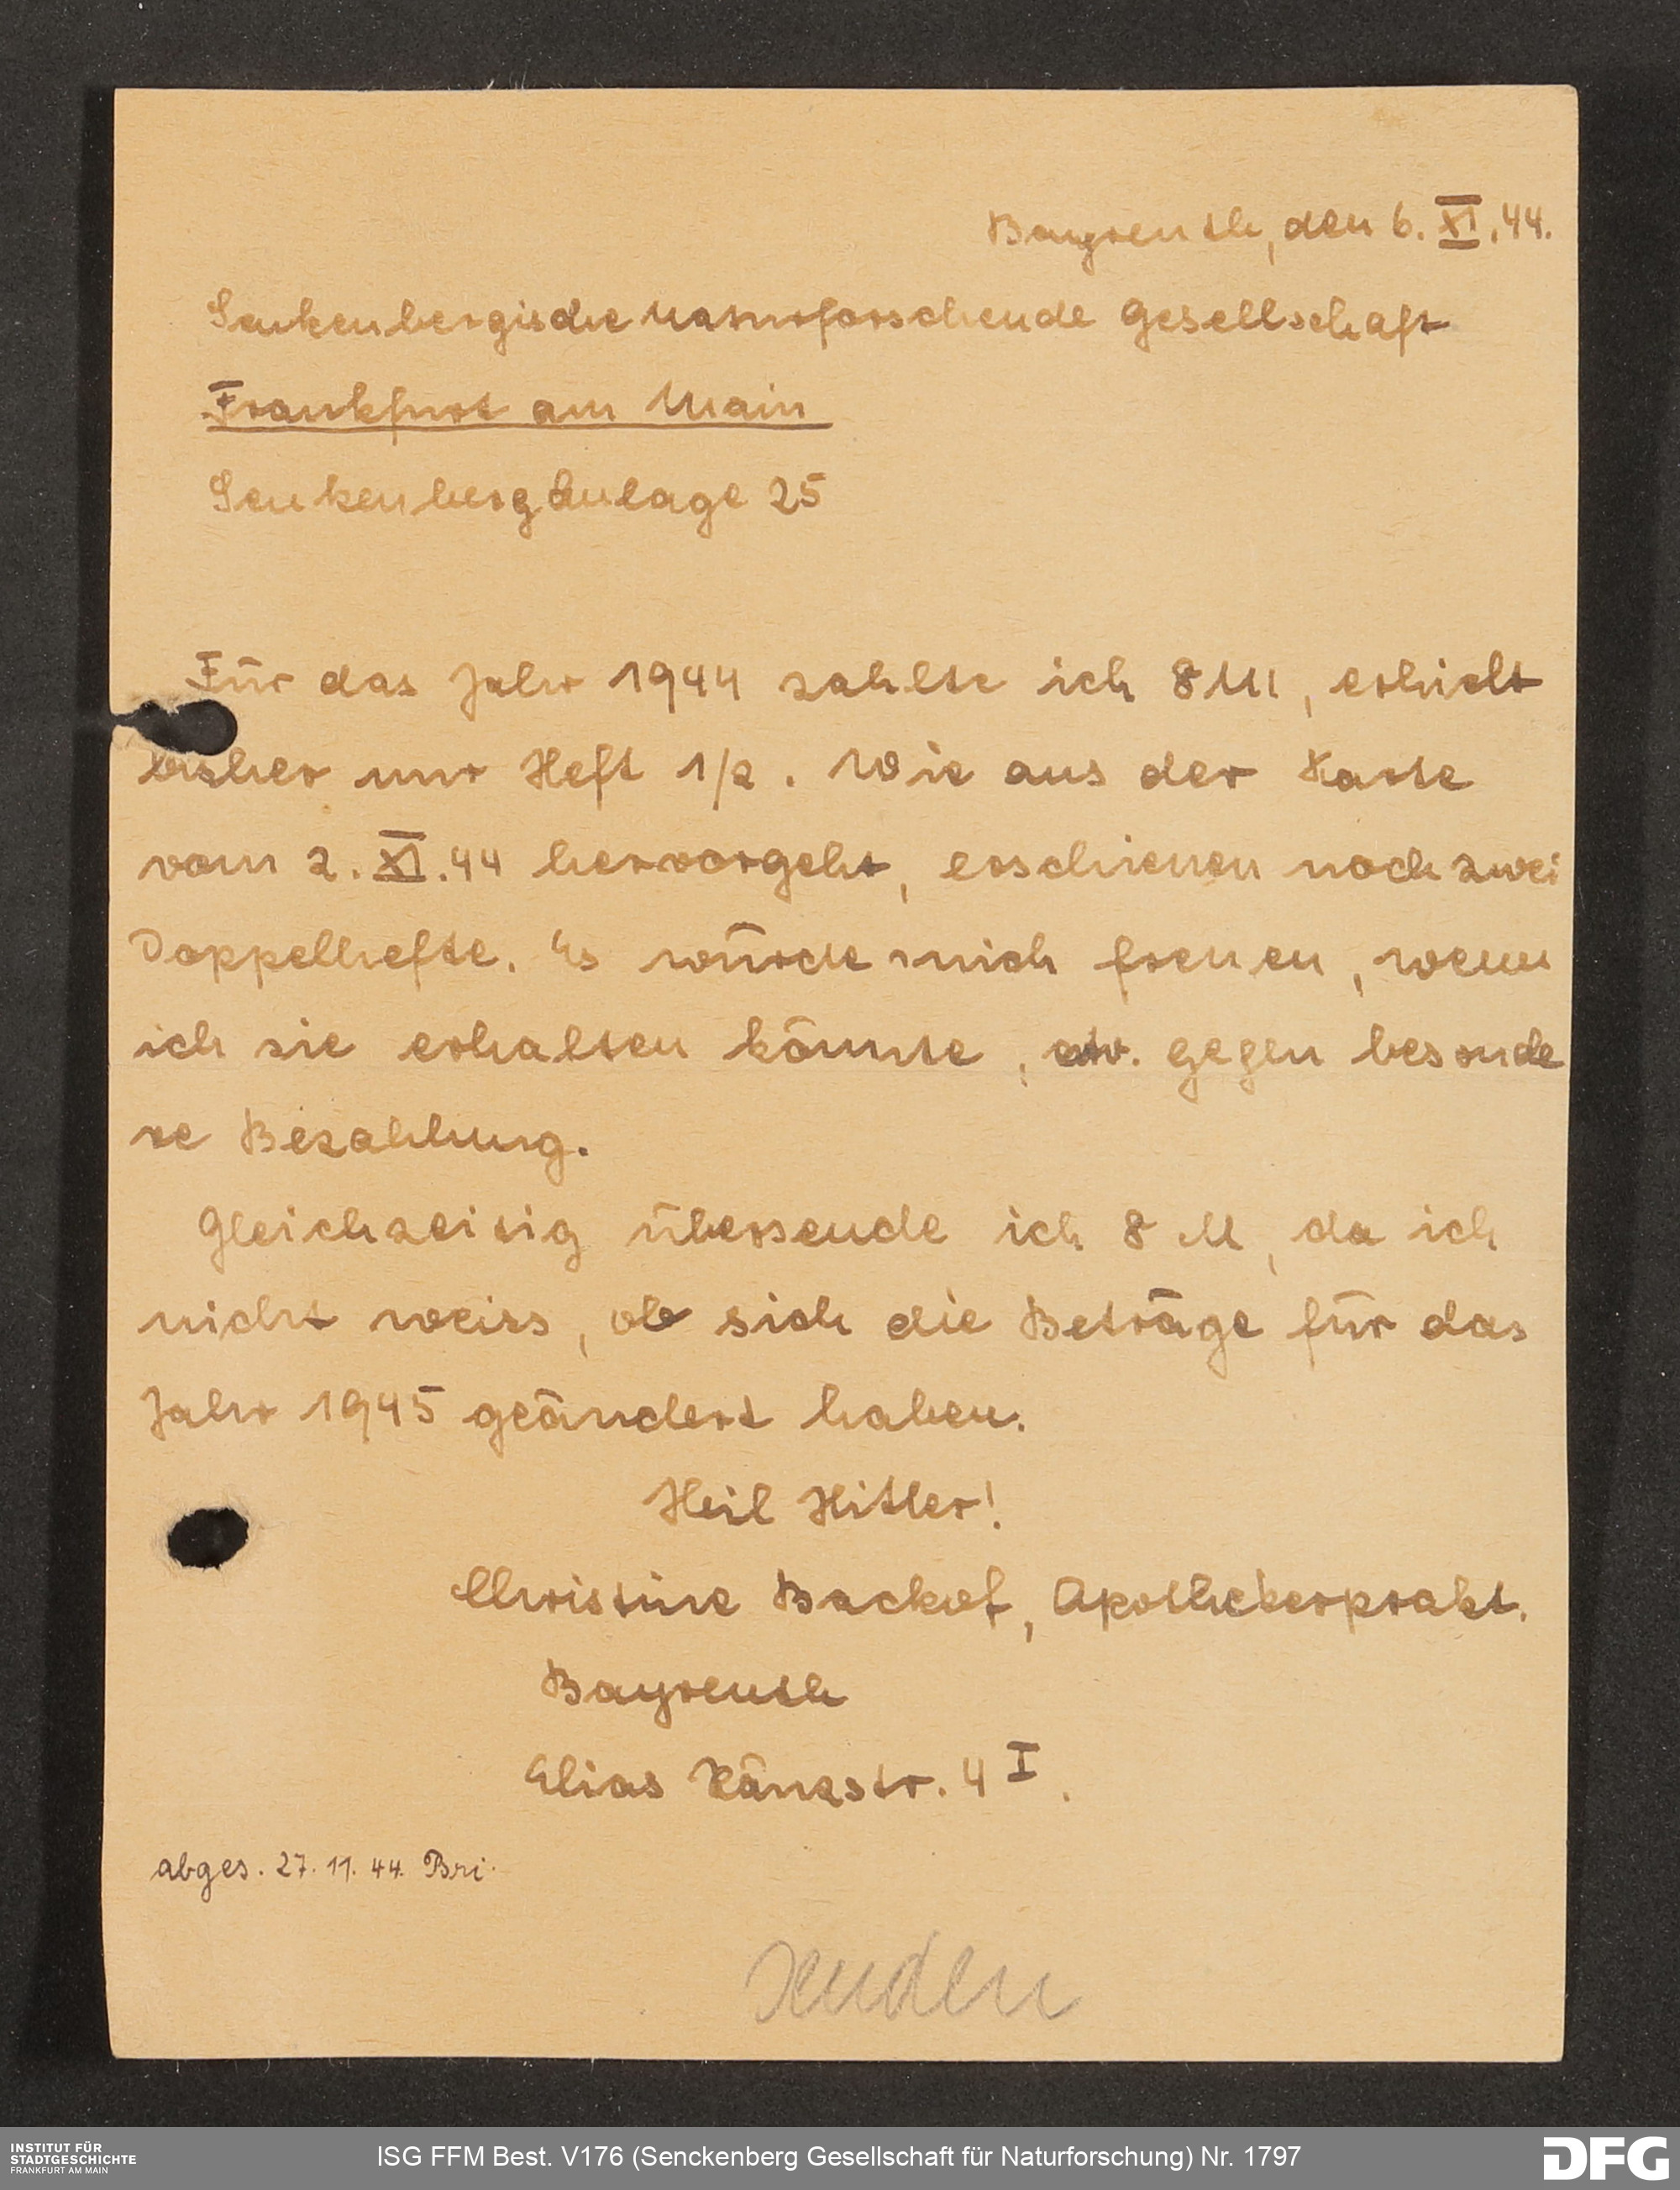 Bayreuth, den 6. XI. 44.
Senkenbergische Naturforschende Gesellschaft
Frankfurt am Main
Senkenberg Anlage 25
Für das Jahr 1944 zahlte ich 8 M, erhielt
bisher nur Heft 1/2. Wie aus der Karte
vom 2. XI. 44 hervorgeht, erschienen noch zwei
Doppelhefte. Es würde mich freuen, wenn
ich sie erhalten könnte, etv. gegen besonde
re Bezahlung.
Gleichzeitig übersende ich 8 M, da ich
nicht weiss, ob sich die Beträge für das
Jahr 1945 geändert haben.
Heil Hitler!
Christine Backof, Apothekerprakt.
Bayreuth
Elias Ränzstr. 4 I.
abges. 27. 11. 44. Bri.
senden
INSTITUT FÜR
STADTGESCHICHTE
FRANKFURT AM MAIN
ISG FFM Best. V176 (Senckenberg Gesellschaft für Naturforschung) Nr. 1797
DFG